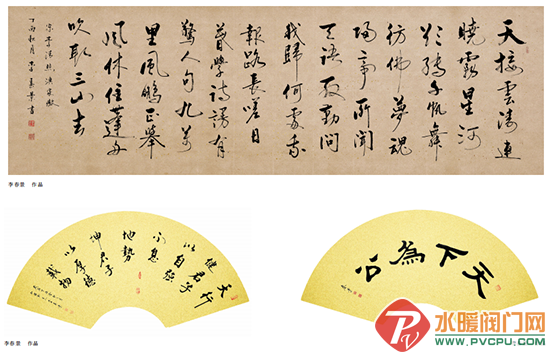 天接雲濤連
曉霧星河
欲轉千帆舞
彷彿夢魂
歸帝所聞
天語殷勤問
我歸何處我
報路長嗟日
暮學詩謾有
驚人句九萬
里風鵬正舉
風休住蓬舟
吹取三山去
宋李清照漁家傲
李春景 作品
天行
健君子
以自強
不息
地勢
坤君子
以厚德
載物
李春景 作品
天下為公
水暖阀门网
WWW.PVCPU.COM